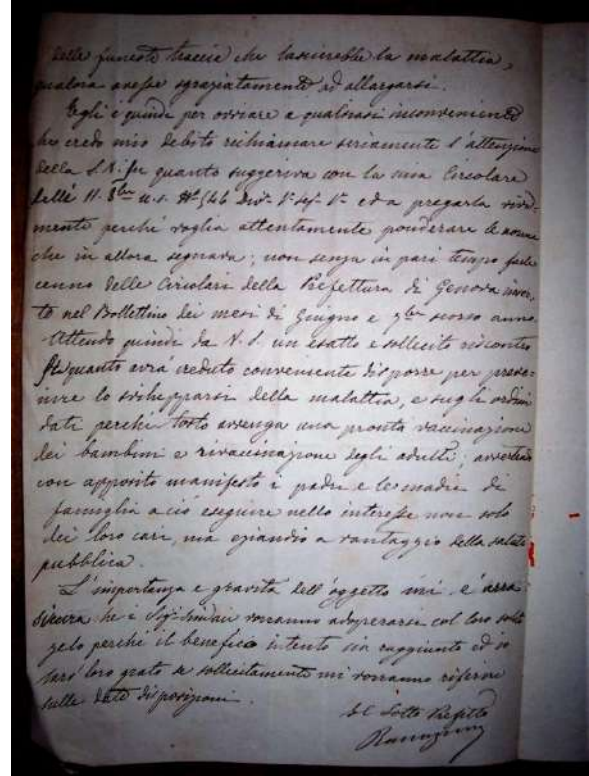 delle funeste traccie che lascierebbe la malattia,
qualora avesse sgraziatamente ad allargarsi.
Egli è quindi per ovviare a qualsiasi inconveniente
che credo mio debito richiamare seriamente l'attenzione
della S.V. su quanto suggeriva con la mia Circolare
delli 11. 8bre u.s. N° 546 Div. 1a Sez. 1a ed a pregarla viva-
mente perchè voglia attentamente ponderare le norme
che in allora segnava; non senza in pari tempo farle
cenno delle Circolari della Prefettura di Genova inser-
te nel Bollettino dei mesi di Giugno e 9bre scorso anno.
Attendo quindi da V.S. un esatto e sollecito riscontro
di quanto avrà creduto conveniente disporre per preve-
nire lo svilupparsi della malattia, e sugli ordini
dati perchè tosto avvenga una pronta vaccinazione
dei bambini e rivaccinazione degli adulti; avvertendo
con apposito manifesto i padri e le madri di
famiglia a ciò eseguire nello interesse non solo
dei loro cari, ma eziandio a vantaggio della salute
pubblica.
L'importanza e gravità dell'oggetto mi è arra
sicura che i Sigi. Sindaci vorranno adoperarsi col loro solito
zelo perchè il benefico intento sia raggiunto ed io
sarò loro grato se sollecitamente mi vorranno riferire
sulle date disposizioni.
Il Sotto Prefetto